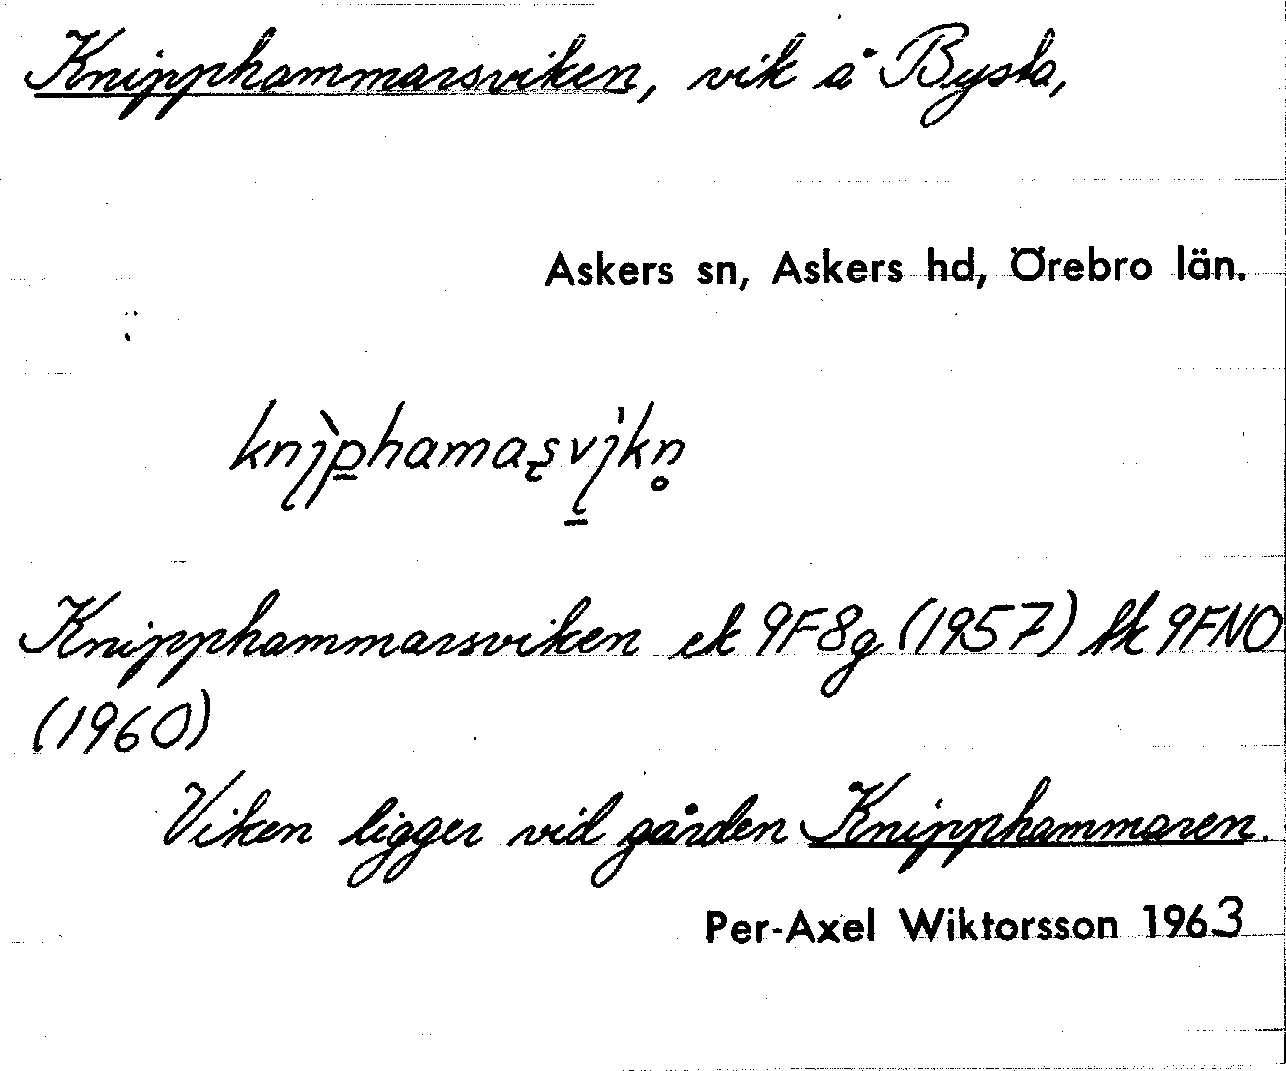 Knipphammarsviken, vik å Bysta,
Askers sn, Askers hd, Örebro län.
Knipphammarsviken ek 9F8g (1957) tk 9FNO
(1960)
Viken ligger vid gården Knipphammaren.
Per-Axel Wiktorsson 1963